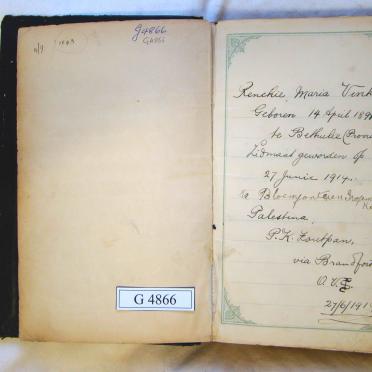 n/g 1043
G4866
G4866
G 4866
Renckie Maria Vink
Geboren 14 April 189
te Bethulie (Provi
Lidmaat geworden op
27 Junie 1914.
te Bloemfontein
Palestina.
P.K. Zoutpan,
via Brandfor
O.V.S.
27/6/191